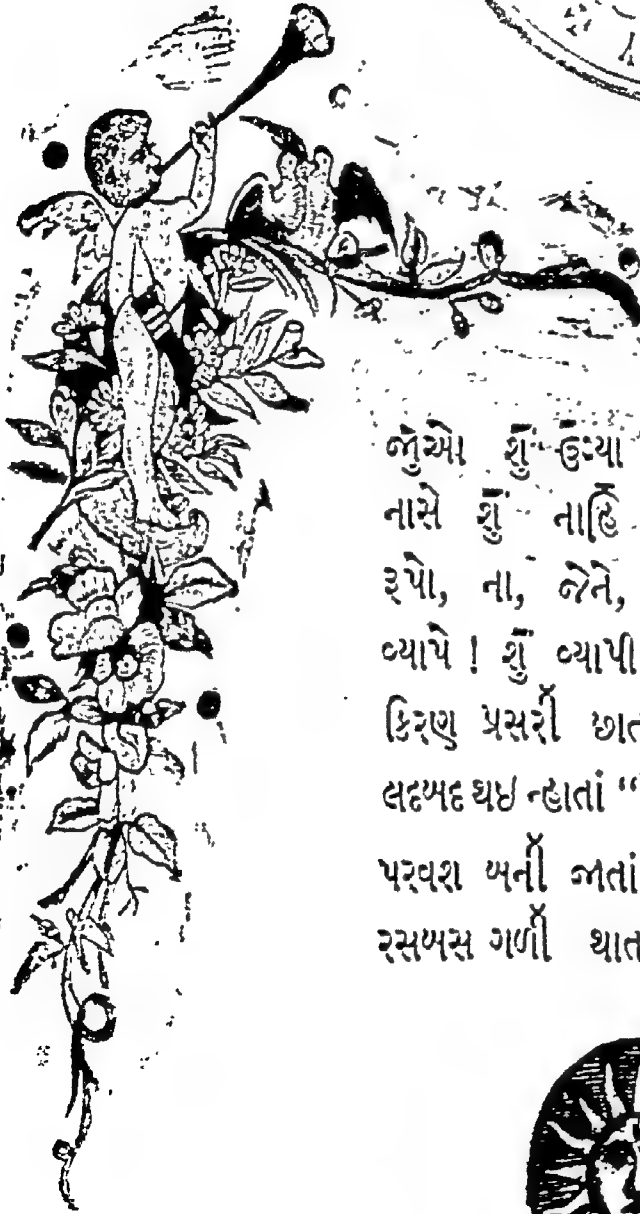 જાુઓ શું ઉગ્યા
નાસે શું નાહિં
રૂપો, ના, જેને,
વ્યાપે ! શું વ્યાપી
કિરણ પ્રસરીૅ છાત
લદબદ થઇ ન્હાતાં “
પરવશ બનીૅ જાતાં
રસબસ ગળીૅ થાત